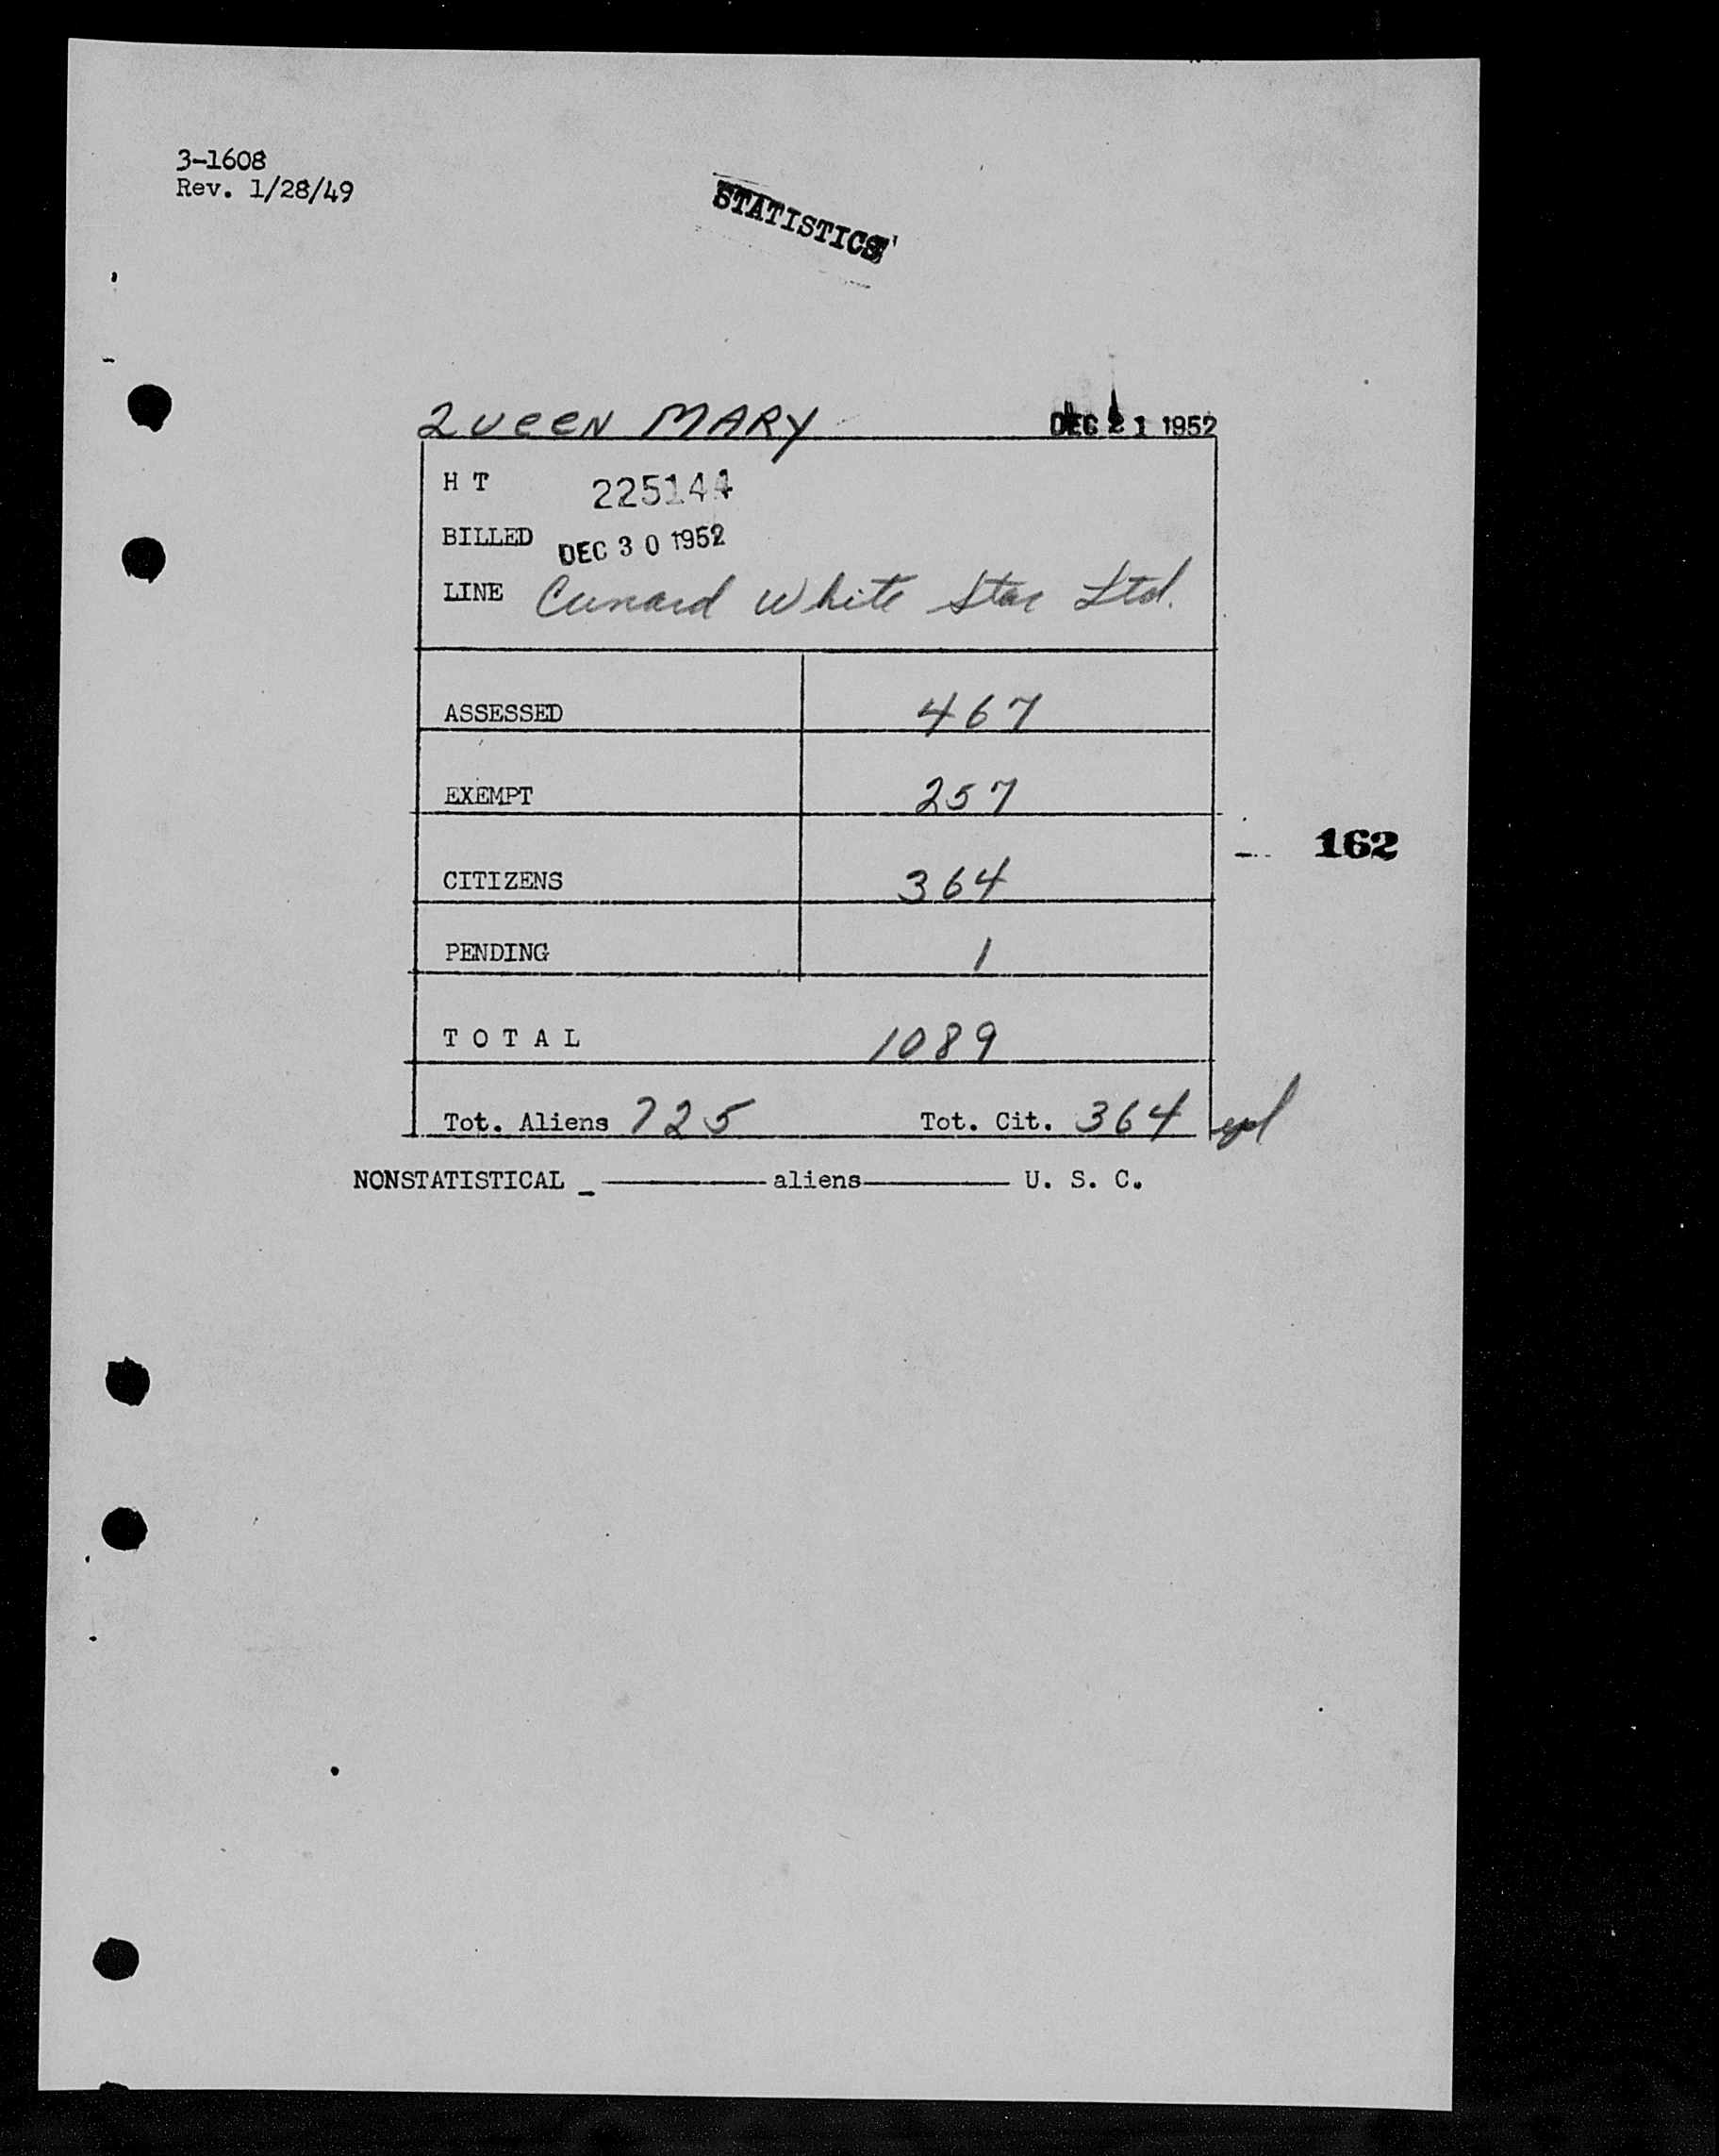 3-1608
Rev. 1/28/49
STATISTICS
QUEEN MARY DEC 21 1952
H T 225144
BILLED DEC 30 1952
LINE Cunard White Star Ltd.
ASSESSED 467
EXEMPT 257
162
CITIZENS 364
PENDING 1
TOTAL 1089
Tot. Aliens 725 Tot. Cit. 364
NONSTATISTICAL aliens U. S. C.